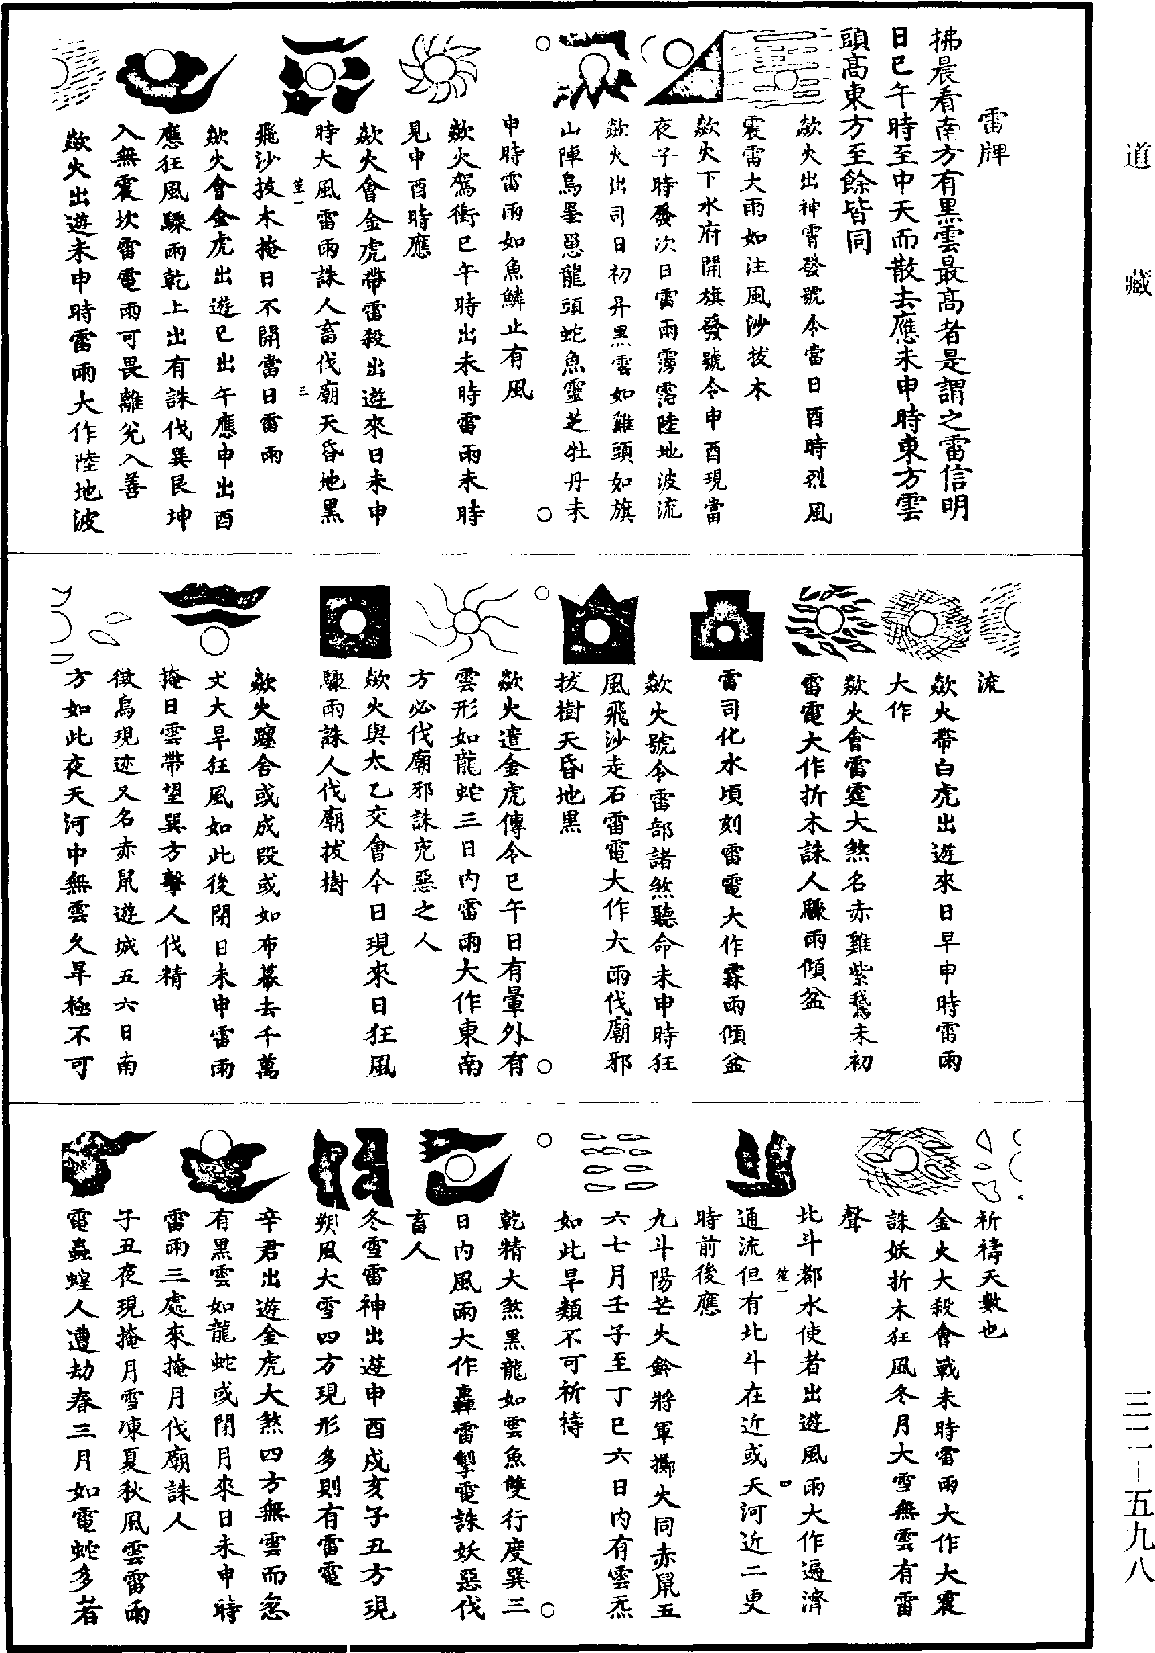 道藏
三二—五九八
雷牌
拂晨看南方有黑雲最高者是謂之雷信明
日巳午時至中天而散去應未申時東方雲
頭高東方至餘皆同
歘火出神霄發號令當日酉時烈風
震雷大雨如注風沙拔木
歘火下水府開旗發號令申酉現當
夜子時發次日雷雨霶霈陸地波流
歘火出司日初升黑雲如雞頭如旗
山陣烏墨惡龍頭蛇魚靈芝牡丹未
申時雷雨如魚鱗止有風
歘火駕衝巳午時出未時雷雨未時
見申酉時應
歘火會金虎帶雷殺出遊來日未申
時大風雷雨誅人畜伐廟天昏地黑
飛沙拔木掩日不開當日雷雨
歘火會金虎出遊巳出午應申出酉
應狂風驟雨乾上出有誅伐巽艮坤
入無震坎雷電雨可畏離兊入善
歘火出遊未申時雷雨大作陸地波
流
歘火帶白虎出遊來日早申時雷雨
大作
歘火會雷霆大煞名赤雞紫鵞未初
雷電大作折木誅人驟雨傾盆
雷司化水頃刻雷電大作霖雨傾盆
歘火號令雷部諸煞聽命未申時狂
風飛沙走石雷電大作大雨伐廟邪
拔樹天昏地黑
歘火遣金虎傳令巳午日有暈外有
雲形如龍蛇三日內雷雨大作東南
方必伐廟邪誅兇惡之人
歘火與太乙交會今日現來日狂風
驟雨誅人伐廟拔樹
歘火躔舍或成段或如布幕去千萬
丈大旱狂風如此後閉日未申雷雨
掩日雲帶望巽方擊人伐精
徵鳥現迹又名赤鼠遊城五六日南
方如此夜天河中無雲久旱極不可
祈禱天數也
金火大殺會戰未時雷雨大作大震
誅妖折木狂風冬月大雪無雲有雷
聲
北斗都水使者出遊風雨大作遍濟
通流但有北斗在近或天河近二更
時前後應
九斗陽芒火鈴將軍擲火同赤鼠五
六七月壬子至丁巳六日內有雲炁
如此旱類不可祈禱
乾精大煞黑龍如雲魚雙行度巽三
日內風雨大作轟雷掣電誅妖惡伐
畜人
冬雪雷神出遊申酉戍亥子丑方現
朔風大雪四方現形多則有雷電
辛君出遊金虎大煞四方無雲而忽
有黑雲如龍蛇或閉月來日未申時
雷雨三處來掩月伐廟誅人
子丑夜現掩月雪凍夏秋風雲雷雨
電蟲蝗人遭劫春三月如電蛇多若